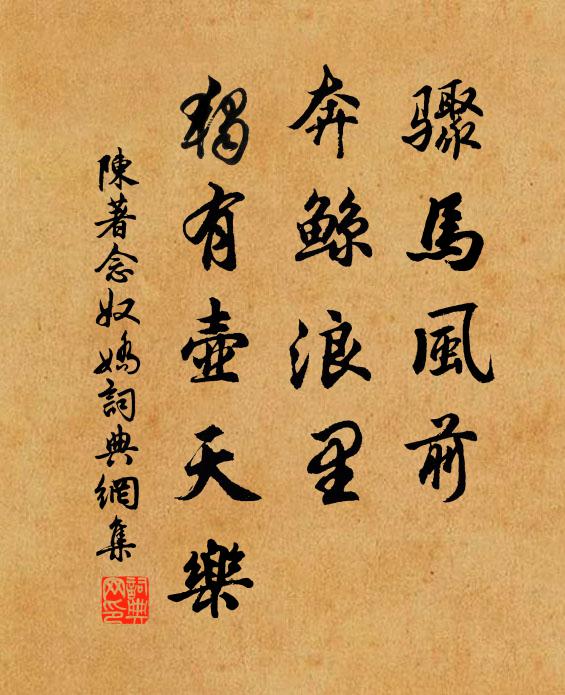 骤馬風前
奔鯨浪里
獨有壺天樂
陳著念奴嬌詞典網集
詞典網印